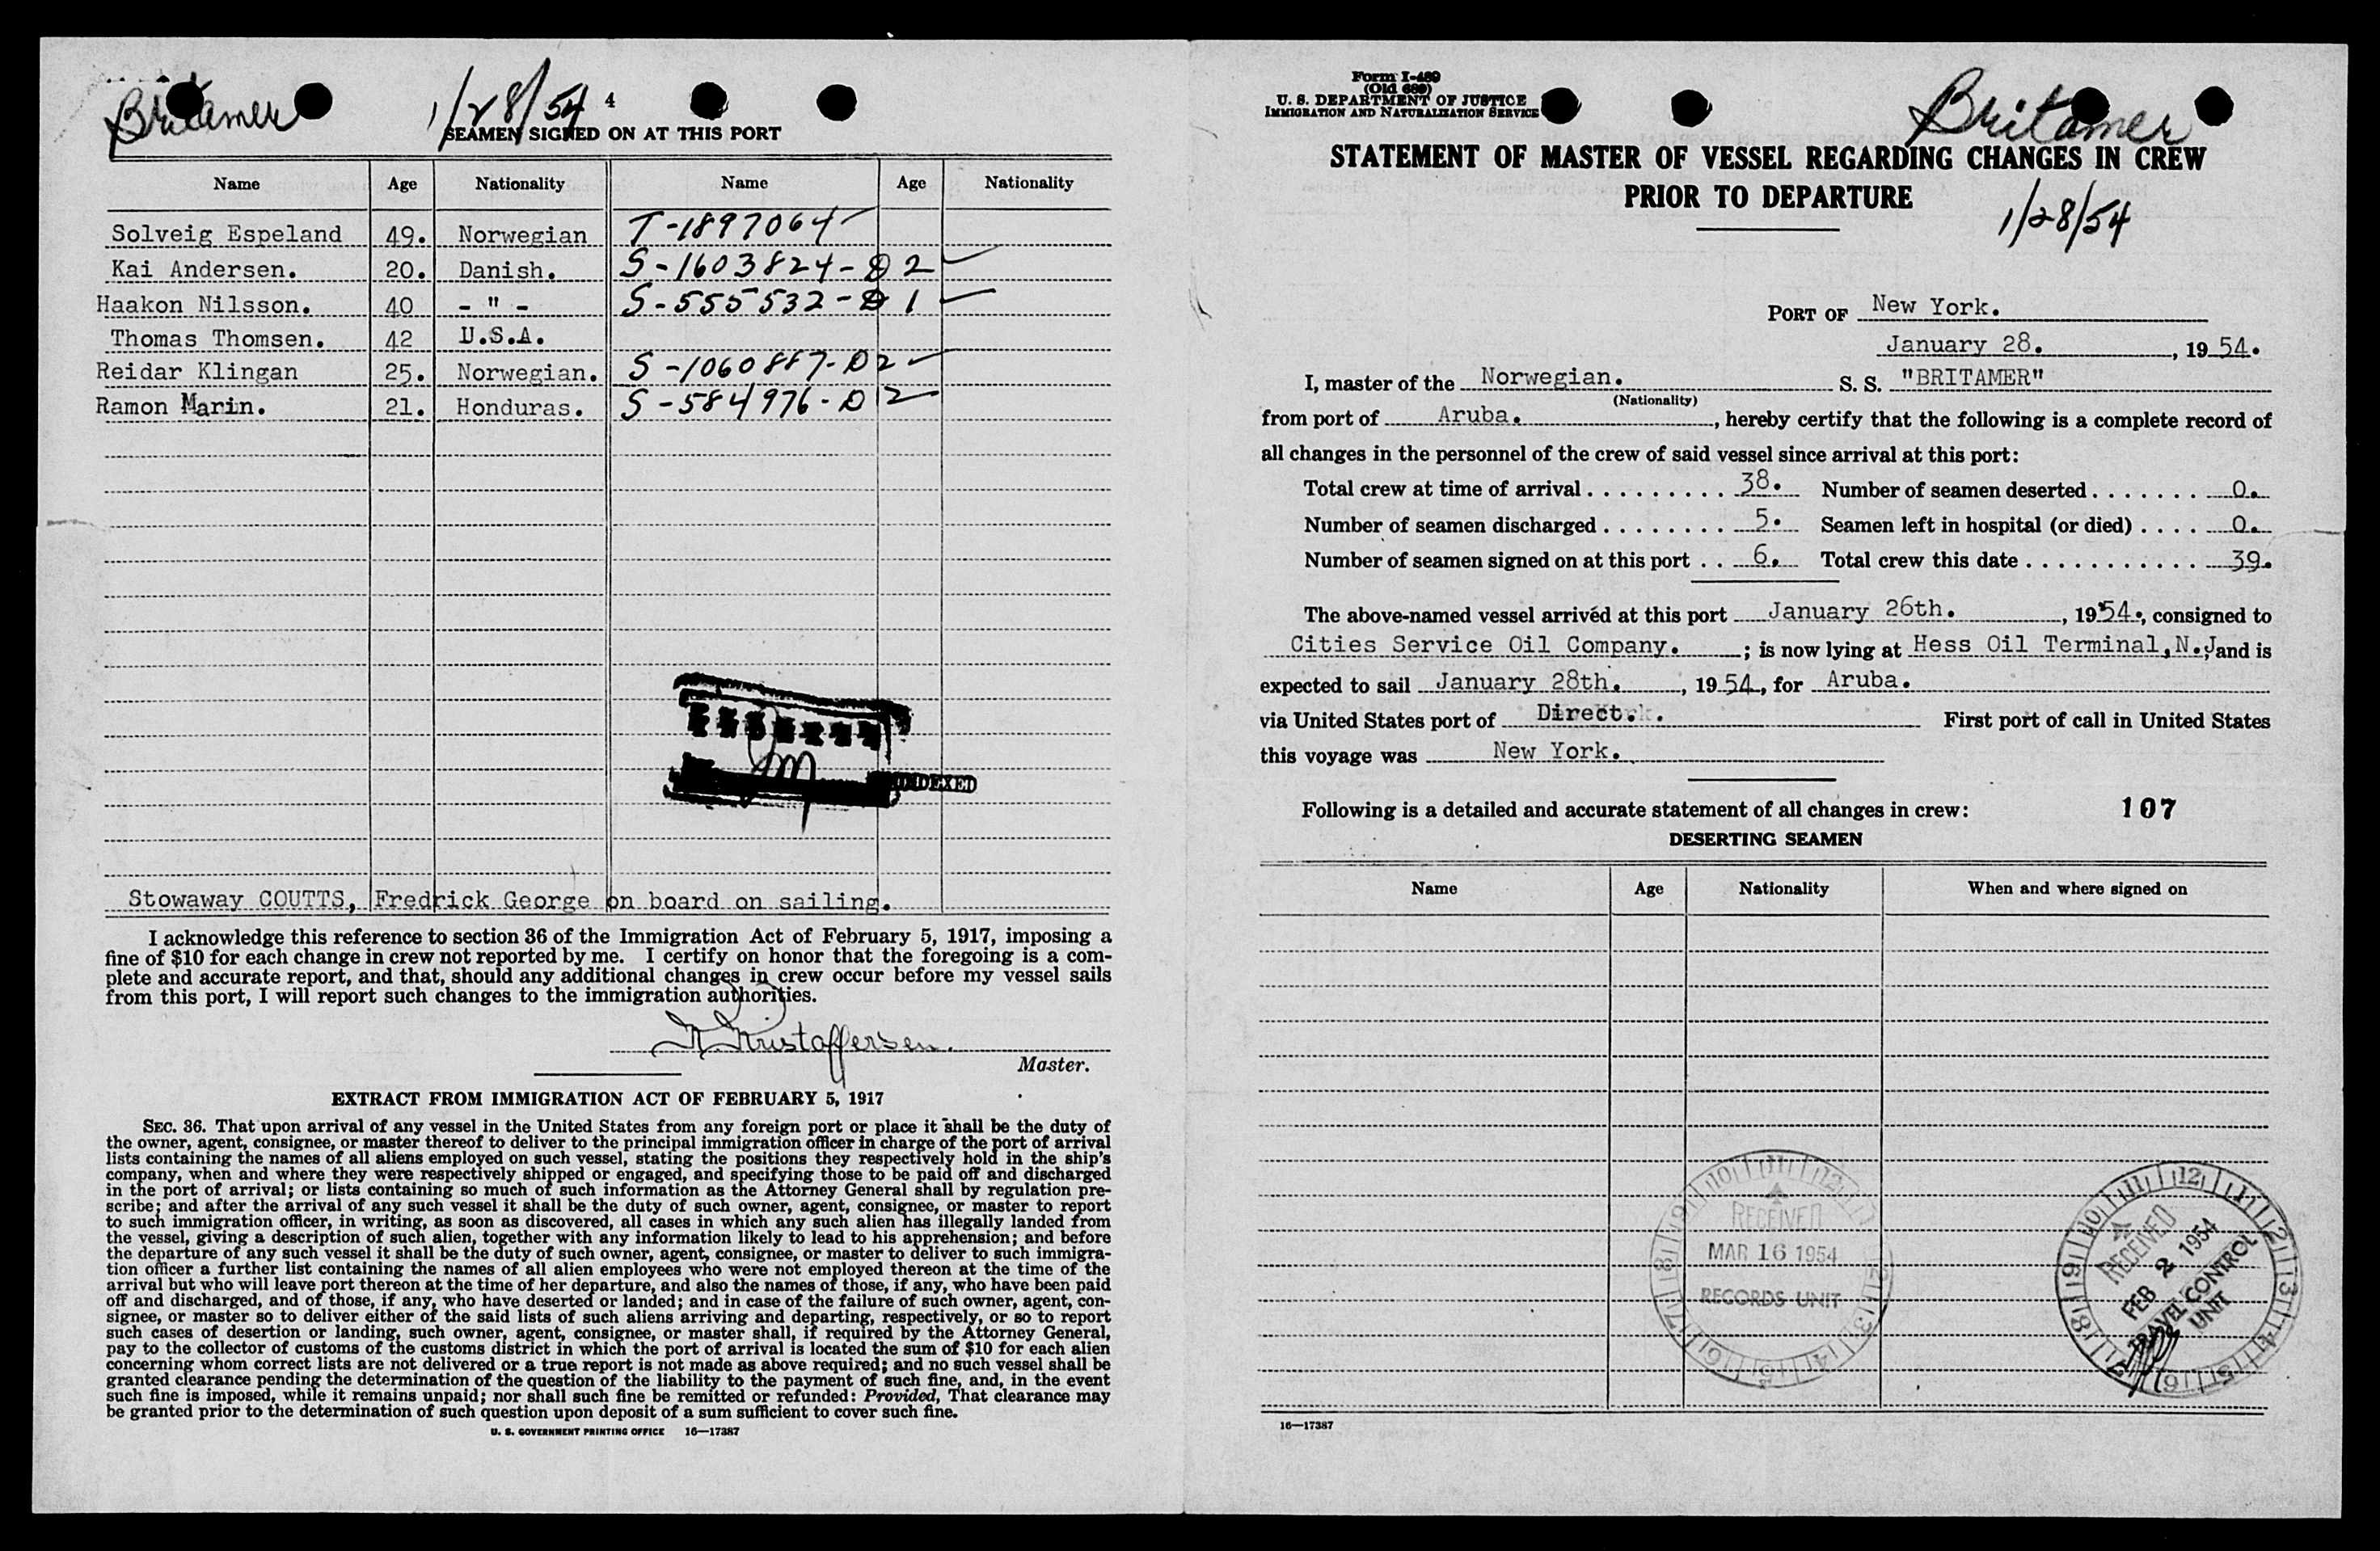 Britamer
1/28/54
4
SEAMEN SIGNED ON AT THIS PORT
Name Age Nationality Name Age Nationality
Solveig Espeland 49. Norwegian T-1897064
Kai Andersen. 20. Danish. S-1603824-D2
Haakon Nilsson. 40 - " - S-555532-D1
Thomas Thomsen. 42 U.S.A.
Reidar Klingan 25. Norwegian. S-1060887-D2
Ramon Marin. 21. Honduras. S-584976-D12
Stowaway COUTTS, Fredrick George on board on sailing.
I acknowledge this reference to section 36 of the Immigration Act of February 5, 1917, imposing a
fine of $10 for each change in crew not reported by me. I certify on honor that the foregoing is a com-
plete and accurate report, and that, should any additional changes in crew occur before my vessel sails
from this port, I will report such changes to the immigration authorities.
Kristoffersen.
Master.
EXTRACT FROM IMMIGRATION ACT OF FEBRUARY 5, 1917
SEC. 36. That upon arrival of any vessel in the United States from any foreign port or place it shall be the duty of
the owner, agent, consignee, or master thereof to deliver to the principal immigration officer in charge of the port of arrival
lists containing the names of all aliens employed on such vessel, stating the positions they respectively hold in the ship's
company, when and where they were respectively shipped or engaged, and specifying those to be paid off and discharged
in the port of arrival; or lists containing so much of such information as the Attorney General shall by regulation pre-
scribe; and after the arrival of any such vessel it shall be the duty of such owner, agent, consignee, or master to report
to such immigration officer, in writing, as soon as discovered, all cases in which any such alien has illegally landed from
the vessel, giving a description of such alien, together with any information likely to lead to his apprehension; and before
the departure of any such vessel it shall be the duty of such owner, agent, consignee, or master to deliver to such immigra-
tion officer a further list containing the names of all alien employees who were not employed thereon at the time of the
arrival but who will leave port thereon at the time of her departure, and also the names of those, if any, who have been paid
off and discharged, and of those, if any, who have deserted or landed; and in case of the failure of such owner, agent, con-
signee, or master so to deliver either of the said lists of such aliens arriving and departing, respectively, or so to report
such cases of desertion or landing, such owner, agent, consignee, or master shall, if required by the Attorney General,
pay to the collector of customs of the customs district in which the port of arrival is located the sum of $10 for each alien
concerning whom correct lists are not delivered or a true report is not made as above required; and no such vessel shall be
granted clearance pending the determination of the question of the liability to the payment of such fine, and, in the event
such fine is imposed, while it remains unpaid; nor shall such fine be remitted or refunded: Provided, That clearance may
be granted prior to the determination of such question upon deposit of a sum sufficient to cover such fine.
U. S. GOVERNMENT PRINTING OFFICE 16—17387
Form I-489
(Old 689)
U. S. DEPARTMENT OF JUSTICE
IMMIGRATION AND NATURALIZATION SERVICE
Britamer
STATEMENT OF MASTER OF VESSEL REGARDING CHANGES IN CREW
PRIOR TO DEPARTURE
1/28/54
PORT OF New York.
January 28. , 19 54.
I, master of the Norwegian. S. S. "BRITAMER"
(Nationality)
from port of Aruba. , hereby certify that the following is a complete record of
all changes in the personnel of the crew of said vessel since arrival at this port:
Total crew at time of arrival . . . . . . . . . 38. Number of seamen deserted . . . . . . . 0.
Number of seamen discharged . . . . . . . . 5. Seamen left in hospital (or died) . . . . 0.
Number of seamen signed on at this port . . 6. Total crew this date . . . . . . . . . . . . 39.
The above-named vessel arrived at this port January 26th. , 1954., consigned to
Cities Service Oil Company. ; is now lying at Hess Oil Terminal, N.J and is
expected to sail January 28th. , 19 54, for Aruba.
via United States port of Direct. First port of call in United States
this voyage was New York.
Following is a detailed and accurate statement of all changes in crew: 107
DESERTING SEAMEN
Name Age Nationality When and where signed on
RECEIVED
MAR 16 1954
RECORDS UNIT
RECEIVED
FEB 2 1954
TRAVEL CONTROL
UNIT
16—17387